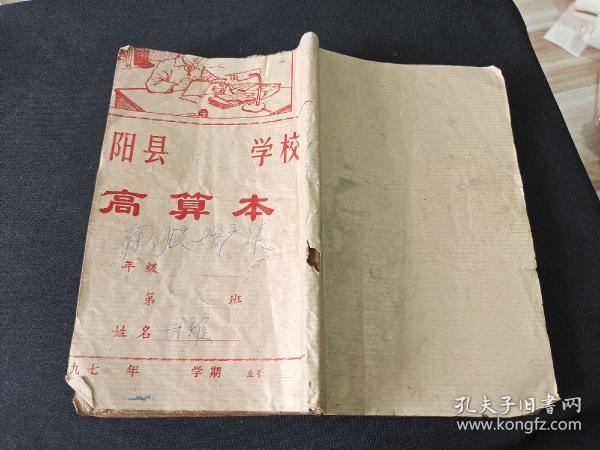 阳县 学校
高算本
年级
第 班
姓名
九七 年 学期 座号
孔夫子旧书网
www.kongfz.com